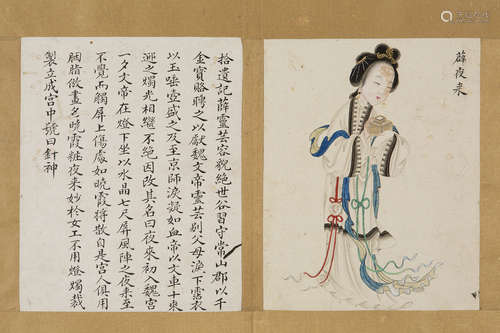 拾遺記薛靈芸容貌絕世谷習守常山郡以千
金寶賂聘之以獻魏文帝靈芸別父母淚下霑衣
以玉唾壺盛之及至京師淚凝如血帝以文車十乘
迎之燭光相繼不絕因改其名曰夜來初入魏宮
一夕文帝在燈下坐以水晶七尺屏風障之夜來至
不覺面觸屏上傷處如曉霞將散自是宮人俱用
胭脂倣畫名曉霞粧夜來妙於女工不用燈燭裁
製立成宮中號曰針神
薛夜來